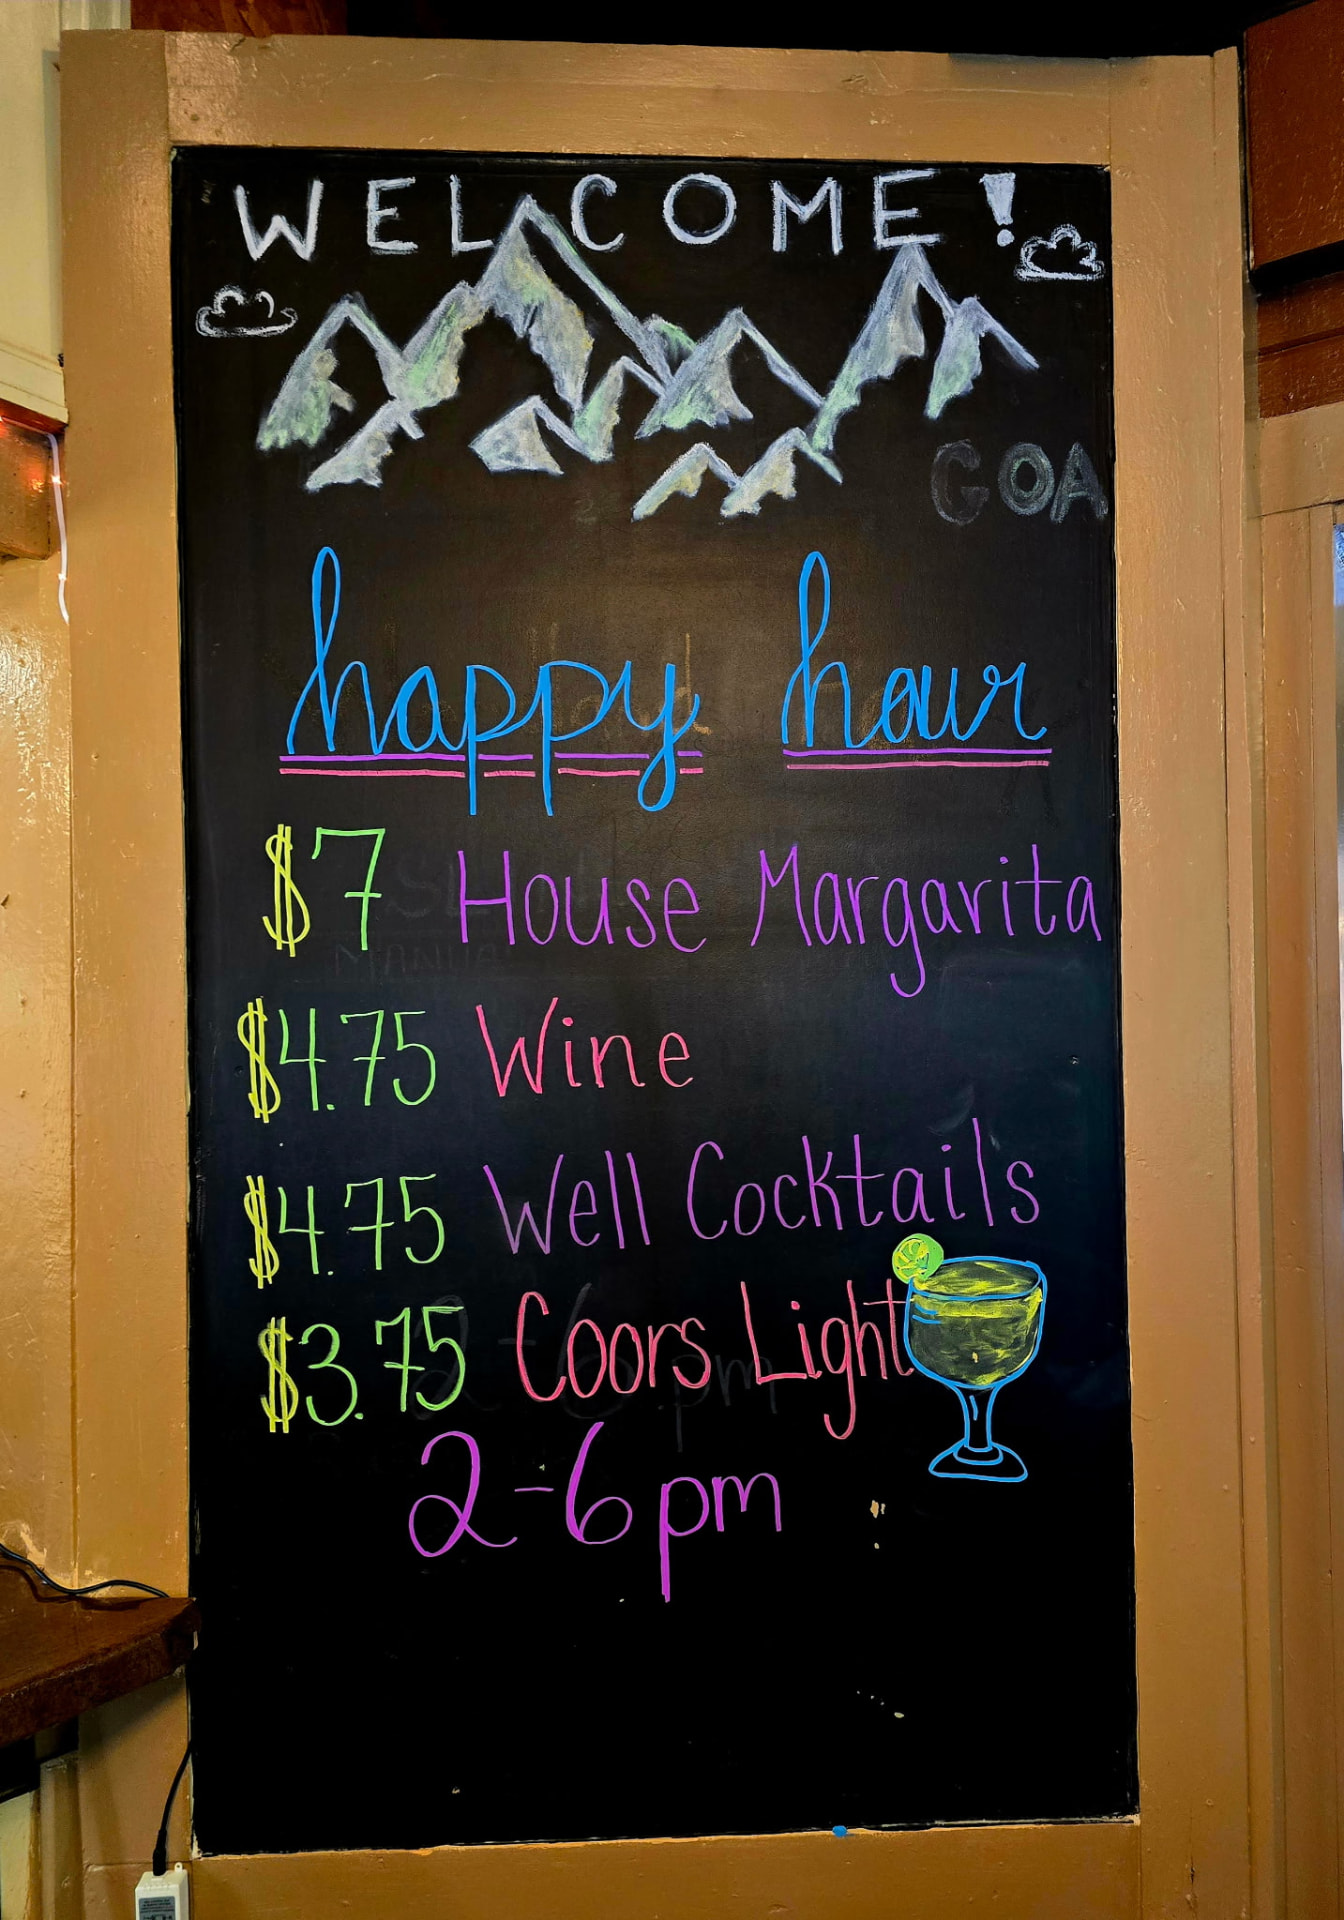 WELCOME!
GOA
happy hour
$7 House Margarita
$4.75 Wine
$4.75 Well Cocktails
$3.75 Coors Light
2-6pm